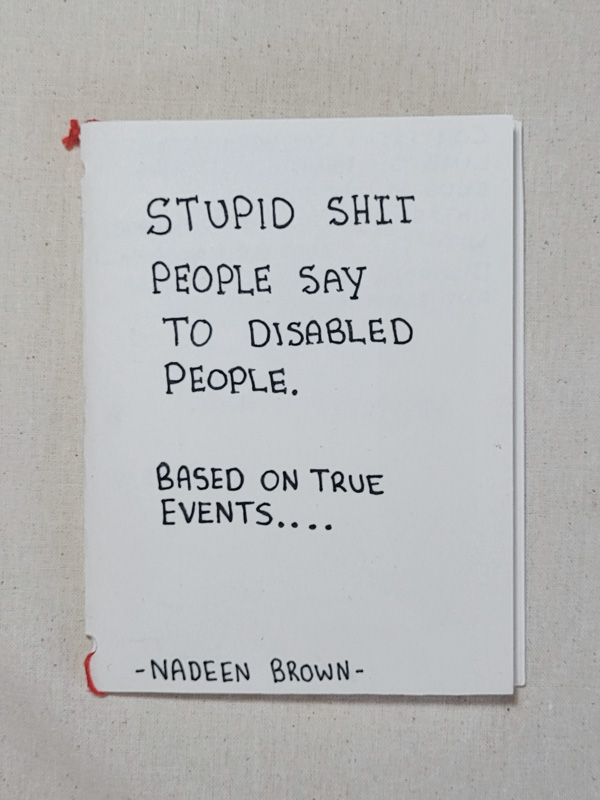 STUPID SHIT
PEOPLE SAY
TO DISABLED
PEOPLE.
BASED ON TRUE
EVENTS....
-NADEEN BROWN-